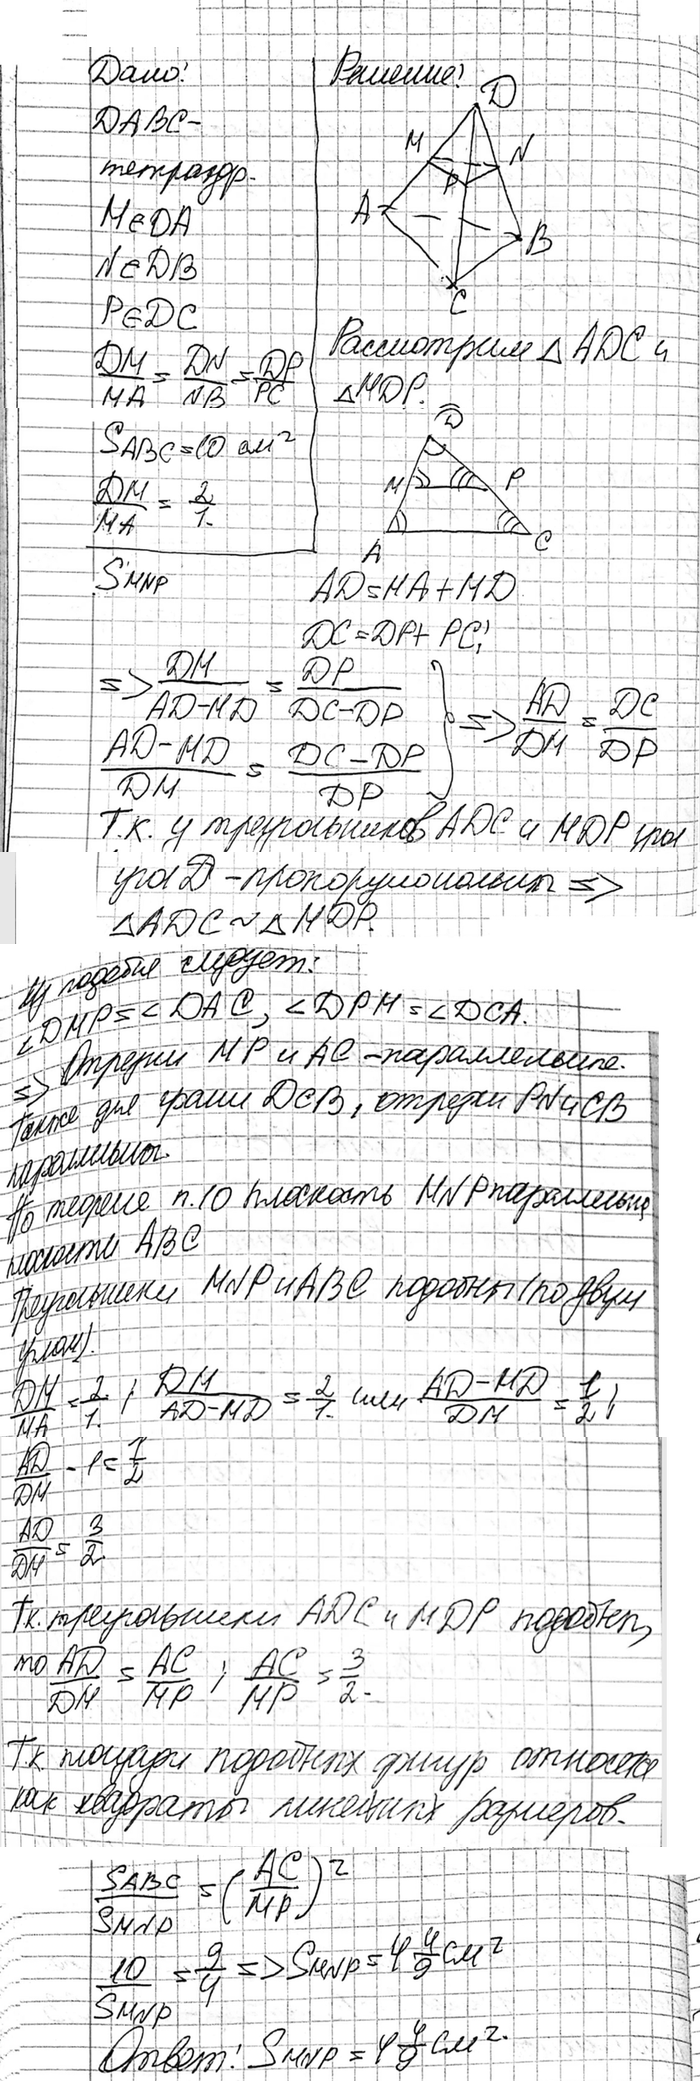 Дано:
DABC-
тетраэдр.
M∈DA
N∈DB
P∈DC
DM/MA = DN/NB = DP/PC
SABC = 10 см²
DM/MA = 2/1.
SMNP
Решение:
D
M
N
P
A
B
C
Рассмотрим △ADC и
△MDP.
D
M
P
A
C
AD=MA+MD
DC=DP+PC;
=> DM/AD-MD = DP/DC-DP
AD-MD/DM = DC-DP/DP
=> AD/DM = DC/DP
Т.к. у треугольников ADC и MDP угол
угол D -пропорциональны =>
△ADC ~ △MDP.
Из подобия следует:
∠DMP=∠DAC, ∠DPM=∠DCA.
=> Отрезки MP и AC -параллельные.
Также для грани DCB, отрезки PN и CB
параллельны.
По теореме п.10 плоскость MNP параллельна
плоскости ABC
Треугольники MNP и ABC подобны (по двум
углам).
DM/MA = 2/1. ; DM/AD-MD = 2/1. или AD-MD/DM = 1/2;
AD/DM - 1 = 1/2
AD/DM = 3/2
Т.к. треугольники ADC и MDP подобны,
то AD/DM = AC/MP ; AC/MP = 3/2.
Т.к площади подобных фигур относятся
как квадраты линейных размеров.
SABC/SMNP = (AC/MP)²
10/SMNP = 9/4 => SMNP = 4 4/9 см²
Ответ: SMNP = 4 4/9 см².